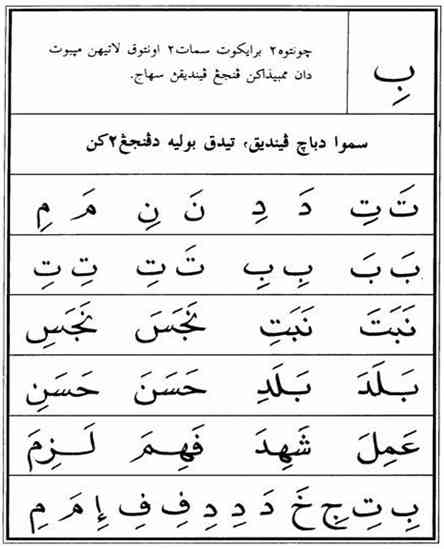 بِ
چونتوه٢ برايكوت سمات٢ اونتوق لاتيهن مڽبوت
دان ممبيذاكن ڤنجڠ ڤينديقڽ سهاج.
سموا دباچ ڤينديق، تيدق بوليه دڤنجڠ٢كن
تَ تِ دَ دِ نَ نِ مَ مِ
بَ بَ بِ بِ تَ تِ تِ تِ
نَبَتَ نَبَتِ نَجَسَ نَجَسِ
بَلَدَ بَلَدِ حَسَنَ حَسَنِ
عَمِلَ شَهِدَ فَهِمَ لَزِمَ
بِ تِ جِ خَ دَ دِ دِ فِ فِ إِ مَ مِ